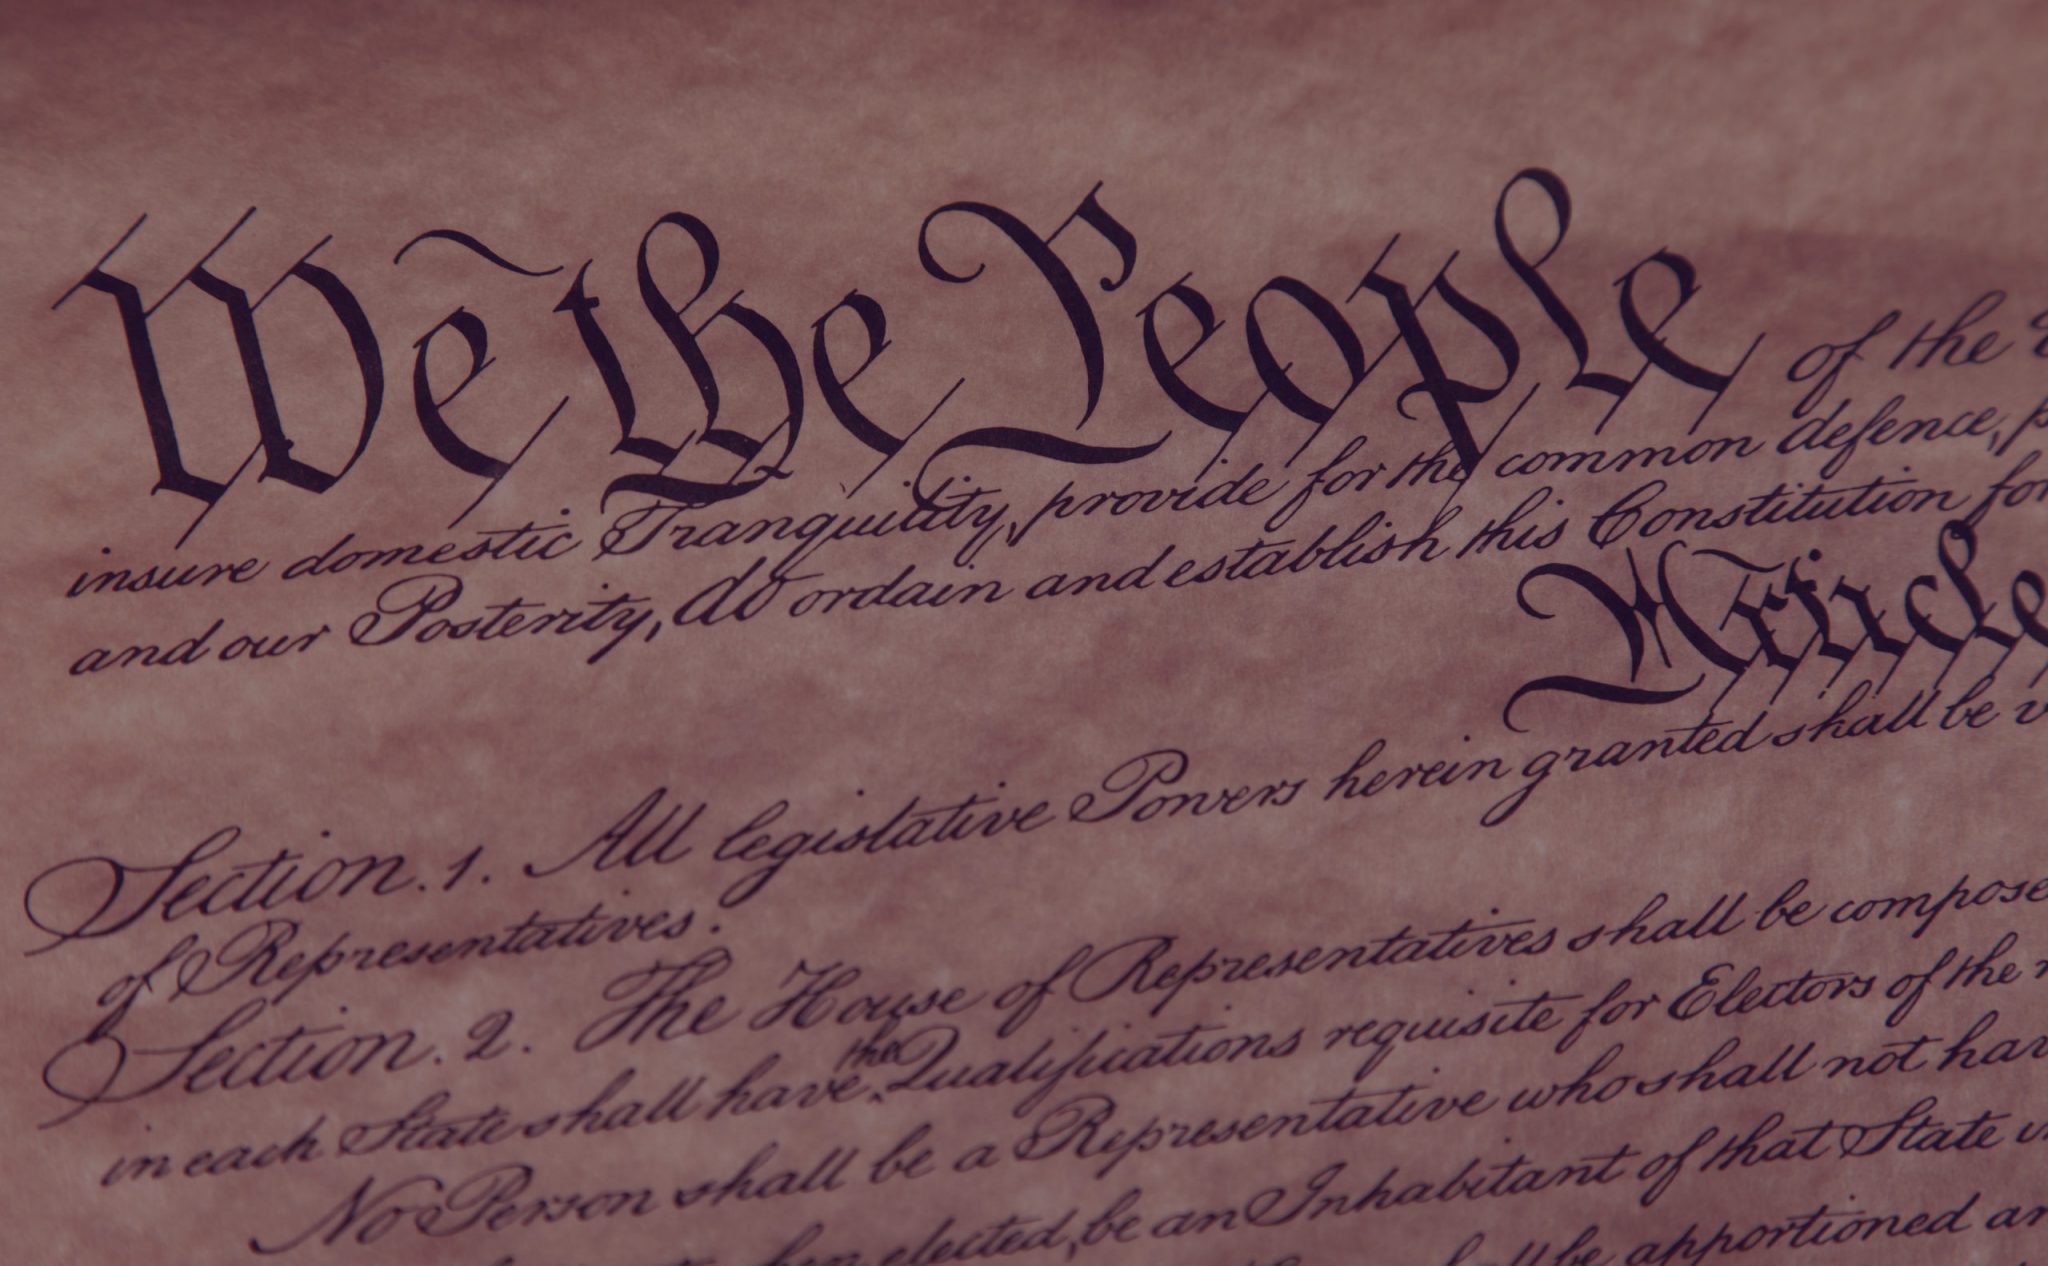 We the People of the
insure domestic Tranquility, provide for the common defence,
and our Posterity, do ordain and establish this Constitution for
Article
Section. 1. All legislative Powers herein granted shall be
of Representatives.
Section. 2. The House of Representatives shall be
the
in each State shall have Qualifications requisite for Electors of the
No Person shall be a Representative who shall not
elected, be an Inhabitant of that State
be apportioned